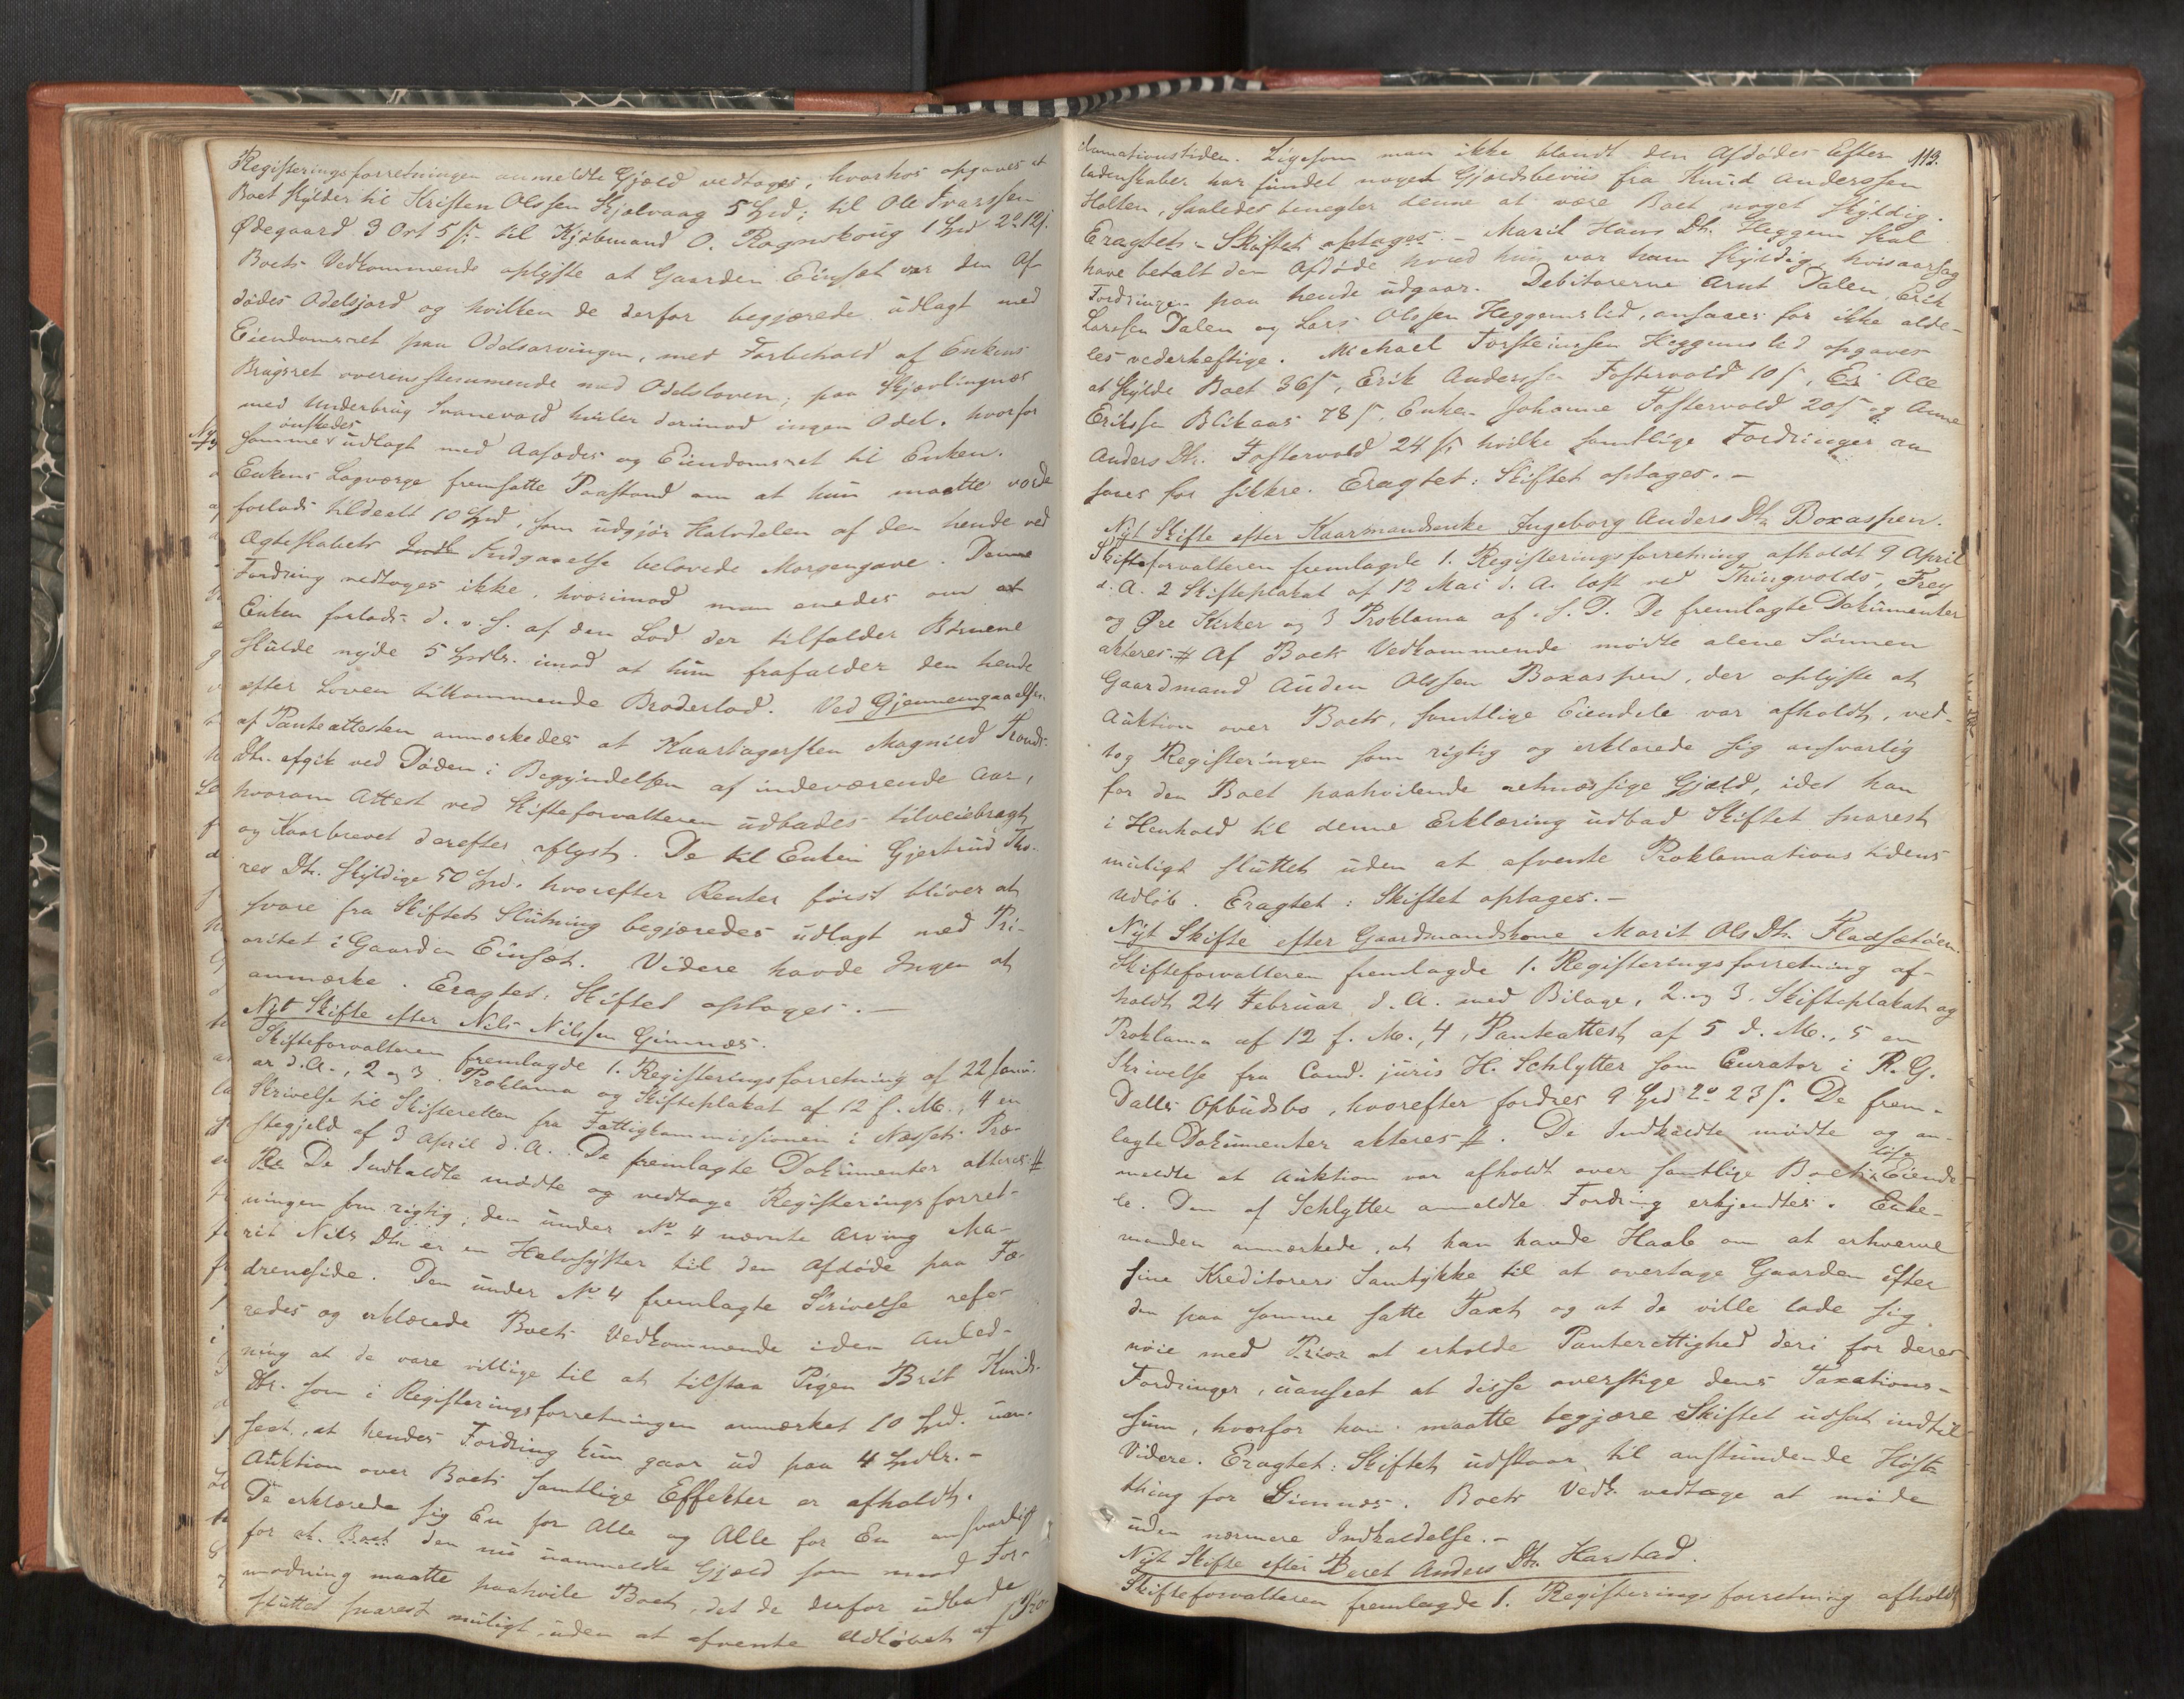 Registeringsforretningen anmeldte Gjæld vedtoges, hvorhos opgaves at
Boet skylder til Kristen Olssen Skjølvaag 5 Spd; til Ole Ivarssen
Ødegaard 3 Ort 5 s; til Kjøbmand O. Rognskoug 1 Spd 2o 12 s.
Boets Vedkommende oplyste at Gaarden Einsæt var den Af-
dødes Odelsjord og hvilken de derfor begjærede udlagt med
Eiendomsret paa Odelsarvingen, med Forbehold af Enkens
Brugsret overensstemmende med Odelsloven; paa Skjævlingnæs
med Underbrug Svanevold hviler derimod ingen Odel, hvorfor
ønskedes
samme udlagt med Aasædes og Eiendomsret til Enken.
Enkens Lagværge fremsatte Paastand om at hun maatte vorde
forlods tildeelt 10 Spd, som udgjør Halvdelen af den hende ved
Ægteskabets Indgaaelse belovede Morgengave. Denne
Fordring vedtoges ikke, hvorimod man enedes om at
Enken forlods d. v. s. af den Lod der tilfalder Børnene
skulde nyde 5 Spdlr. imod at hun frafalder den hende
efter Loven tilkommende Broderlod. Ved Gjennemgaaelsen
af Panteattesten anmærkedes at Kaartagersken Magnild Tronds
Dtr. afgik ved Døden i Begyndelsen af indeværende Aar,
hvorom Attest ved Skifteforvalteren udbades tilveiebragt
og Kaarbrevet derefter aflyst. De til Enken Gjertrud Tho-
res Dtr. skyldige 50 Spd. hvorefter Renter først bliver at
svare fra Skiftets Slutning begjæredes udlagt med Pri-
oritet i Gaarden Einsæt. Videre havde Ingen at
anmærke. Eragtet: Skiftet optages.-
Nyt Skifte efter Nils Nilssen Gimnæs.
Skifteforvalteren fremlagde 1. Registeringsforretning af 22 Janu-
ar d.A., 2 og 3. Proklama og Skifteplakat af 12 f. M., 4 en
Skrivelse til Skifteretten fra Fattigkommissionen i Næssets Præ-
stegjeld af 3 April d. A. De fremlagte Dokumenter akteres #
De Indkaldte mødte og vedtoge Registeringsforret-
ningen som rigtig; den under No 4 nævnte Arving Ma-
rit Nils Dtr er en Halvsyster til den Afdøde paa Fæ-
dreneside. Den under No 4 fremlagte Skrivelse refe-
redes og erklærede Boets Vedkommende i den Anled-
ning at de vare villige til at tilstaa Pigen Brit Knuds
Dtr. som i Registeringsforretningen anmærket 10 Spd. uan-
seet, at hendes Fordring kun gaar ud paa 4 Spdlr.-
Auktion over Boets samtlige Effekter er afholdt.
De erklærede sig En for Alle og Alle for En ansvarlig
for at Boet den nu uanmeldte Gjæld som mod For-
modning maatte paahvile Boet, det de derfor udbade
sluttet snarest muligt, uden at afvente Udløbet af Pro
113.
klamationstiden. Ligesom man ikke blandt den Afdødes Efter-
ladenskaber har fundet noget Gjældsbeviis fra Knud Anderssen
Holten, saaledes benegter denne at være Boet noget skyldig.
Eragtet: Skiftet optages.- Marit Hans Dtr. Heggem skal
have betalt den Afdøde hvad hun var ham skyldig, hvisaarsag
Fordringen paa hende udgaar. Debitorerne Arnt Dalen, Erik
Larssen Dalen og Lars Olssen Heggemslid, ansaaes for ikke alde-
les vederheftige. Michael Torsteinssen Heggemslid opgaves
at skylde Boet 36 s, Erik Anderssen Fostervold 10 s, Ole
Erikssen Blikaas 78 s, Enken Johanne Fostervold 20 s og Anne
Anders Dtr. Fostervold 24 s, hvilke samtlige Fordringer an-
saaes for sikkre. Eragtet: Skiftet optages.-
Nyt Skifte efter Kaarmandsenke Ingeborg Anders Dtr Boxaspen.
Skifteforvalteren fremlagde 1. Registeringsforretning afholdt 9 April
d. A. 2 Skifteplakat af 12 Mai d. A. læst ved Thingvolds, Frey
og Øre Kirker og 3 Proklama af s. D. De fremlagte Dokumenter
akteres.# Af Boets Vedkommende mødte alene Sønnen
Gaardmand Auden Olssen Boxaspen, der oplyste at
Auktion over Boets samtlige Eiendele var afholdt, ved-
tog Registeringen som rigtig og erklærede sig ansvarlig
for den Boet paahvilende retmæssige Gjæld, idet han
i Henhold til denne Erklæring udbad Skiftet snarest
muligt sluttet uden at afvente Proklamationstidens
Udløb. Eragtet: Skiftet optages.-
Nyt Skifte efter Gaardmandskone Marit Ols Dtr. Fladsætøen.
Skifteforvalteren fremlagde 1. Registeringsforretning af-
holdt 24 Februar d. A. med Bilage, 2. og 3. Skifteplakat og
Proklama af 12 f. M., 4, Panteattest af 5 d. M., 5 en
Skrivelse fra Cand. juris H. Schlytter som Curator i R. G.
Dalls Opbudsbo, hvorefter fordres 9 Spd 2o 23 s. De frem-
lagte Dokumenter akteres #. De Indkaldte mødte og an-
løse
meldte at Auktion var afholdt over samtlige Boets Eiende-
le. Den af Schlytter anmeldte Fordring erkjendtes. Enke-
manden anmærkede, at han havde Haab om at erhverve
sine Kreditorers Samtykke til at overtage Gaarden efter
den paa samme satte Taxt og at de ville lade sig
nøie med Prior at erholde Panterettighed deri for deres
Fordringer, uanseet at disse overstige dens Taxations-
sum, hvorfor han maatte begjære Skiftet udsat indtil
Videre. Eragtet: Skiftet udstaar til anstundende Høst-
thing for Gimnæs. Boets Vedk. vedtoge at møde
uden nærmere Indkaldelse.-
Nyt Skifte efter Beret Anders Dtr. Harstad.
Skifteforvalteren fremlagde 1. Registeringsforretning afholdt